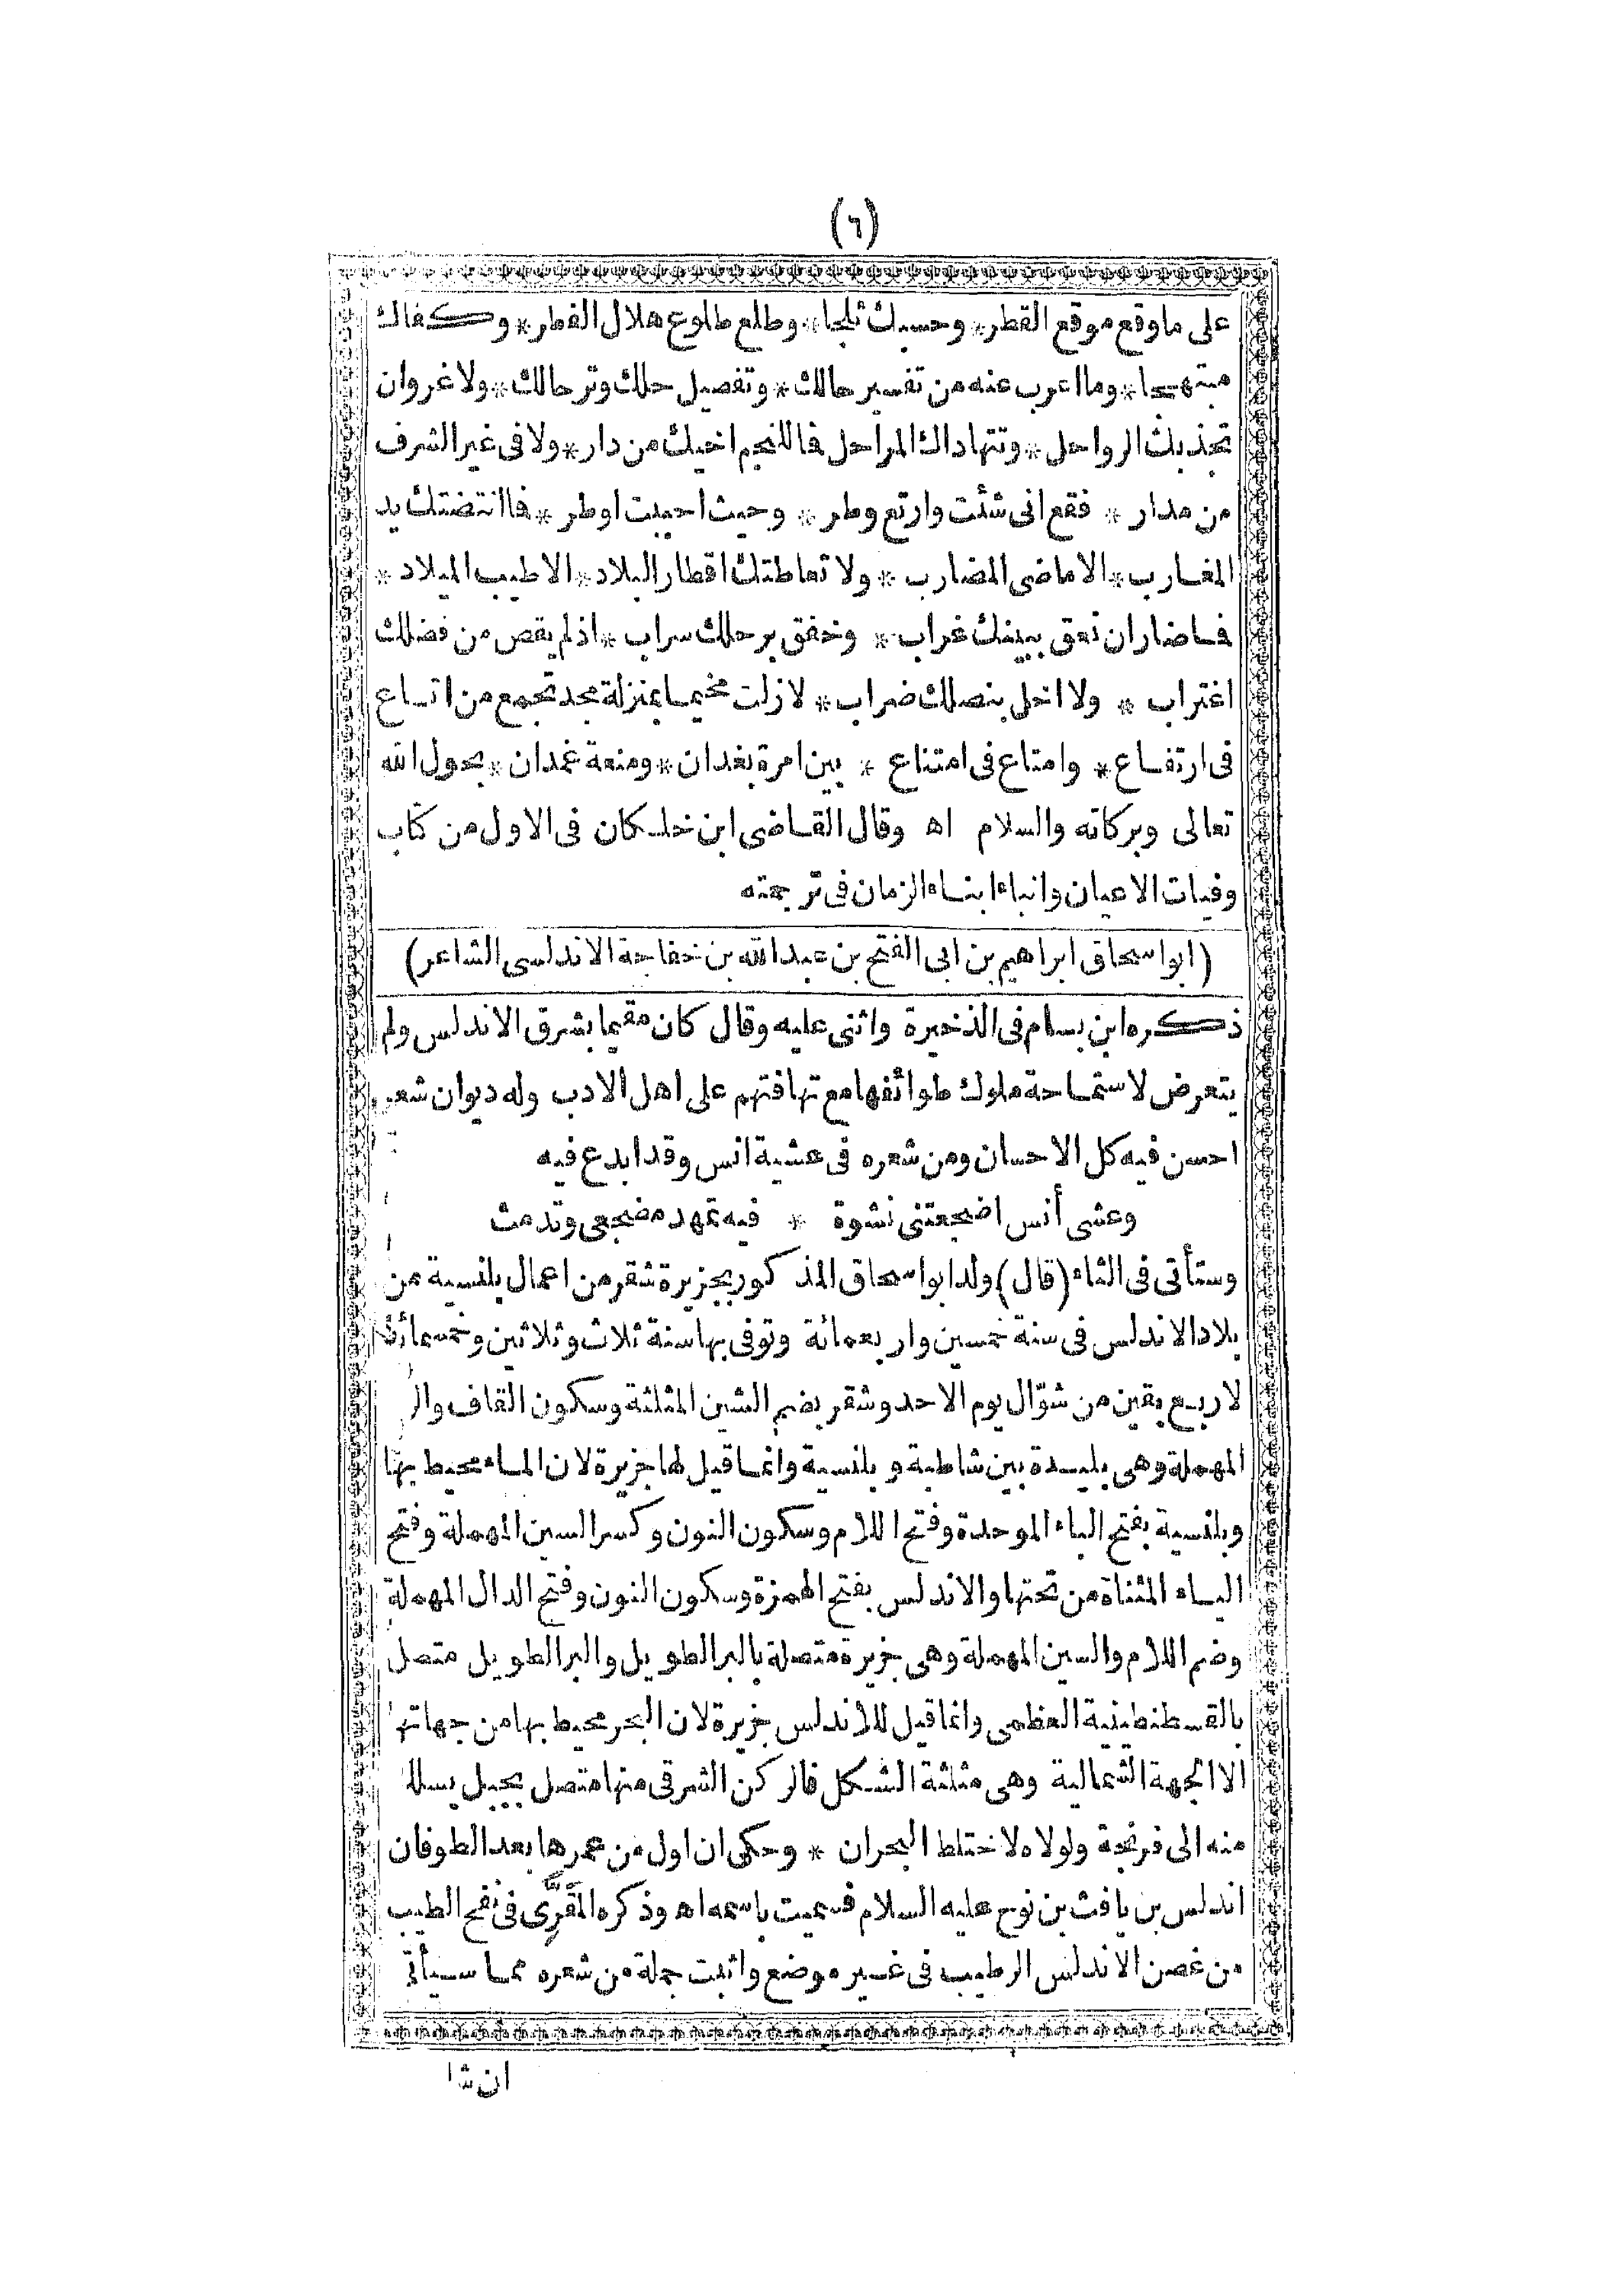 (٦)
على ما وقع موقع القطر * وحسبك ثلجا * وطلع طلوع هلال الفطر * وكفاك
مبتهجا * وما اعرب عنه من تفسير حالك * وتفصيل حلك وترحالك * ولا غروان
تجذبك الرواحل * وتتهاداك المراحل فما للنجم اخيك من دار * ولا فى غير الشرف
من مدار * فقع انى شئت وارتع وطر * وحيث احببت اوطر * فما انتضتك يد
المغارب * الا ماضى المضارب * ولا تعاطتك اقطار البلاد * الا طيب الميلاد *
فما ضاران نعق ببينك غراب * وخفق برحلك سراب * اذ لم يقص من فضلك
اغتراب * ولا اخل بنصلك ضراب * لا زلت مخيما بمنزلة مجد تجمع من اتساع
فى ارتفاع * وامتاع فى امتناع * بين امرة بغدان * ومنعة غمدان * بحول الله
تعالى وبركاته والسلام اه وقال القاضى ابن خلكان فى الاول من كتاب
وفيات الاعيان وانباء ابناء الزمان فى ترجمته
(ابو اسحاق ابراهيم بن ابى الفتح بن عبد الله بن خفاجة الاندلسى الشاعر)
ذكره ابن بسام فى الذخيرة واثنى عليه وقال كان مقيما بشرق الاندلس ولم
يتعرض لاستماحة ملوك طوائفها مع تهافتهم على اهل الادب وله ديوان شعر
احسن فيه كل الاحسان ومن شعره فى عشية انس وقد ابدع فيه
وعشى أنس اضجعتنى نشوة * فيه تمهد مضجعى وتدمث
وستأتى فى الثاء (قال) ولد ابو اسحاق المذكور بجزيرة شقر من اعمال بلنسية من
بلاد الاندلس فى سنة خمسين واربعمائة وتوفى بها سنة ثلاث وثلاثين وخمسمائة
لاربع بقين من شوّال يوم الاحد وشقر بضم الشين المثلثة وسكون القاف والر
المهملة وهى بليدة بين شاطبة وبلنسية وانما قيل لها جزيرة لان الماء محيط بها
وبلنسية بفتح الباء الموحدة وفتح اللام وسكون النون وكسر السين المهملة وفتح
الياء المثناة من تحتها والاندلس بفتح الهمزة وسكون النون وفتح الدال المهملة
وضم اللام والسين المهملة وهى جزيرة متصلة بالبر الطويل والبر الطويل متصل
بالقسطنطينية العظمى وانما قيل للاندلس جزيرة لان البحر محيط بها من جهاتها
الا الجهة الشمالية وهى مثلثة الشكل فالركن الشرقى منها متصل بجبل يسلك
منه الى فرنجة ولولاه لاختلط البحران * وحكى ان اول من عمرها بعد الطوفان
اندلس بن يافث بن نوح عليه السلام فسميت باسمه اه وذكره المَقَّرِّى فى نفح الطيب
من غصن الاندلس الرطيب فى غير موضع واثبت جملة من شعره مما سيأتى
ان شا